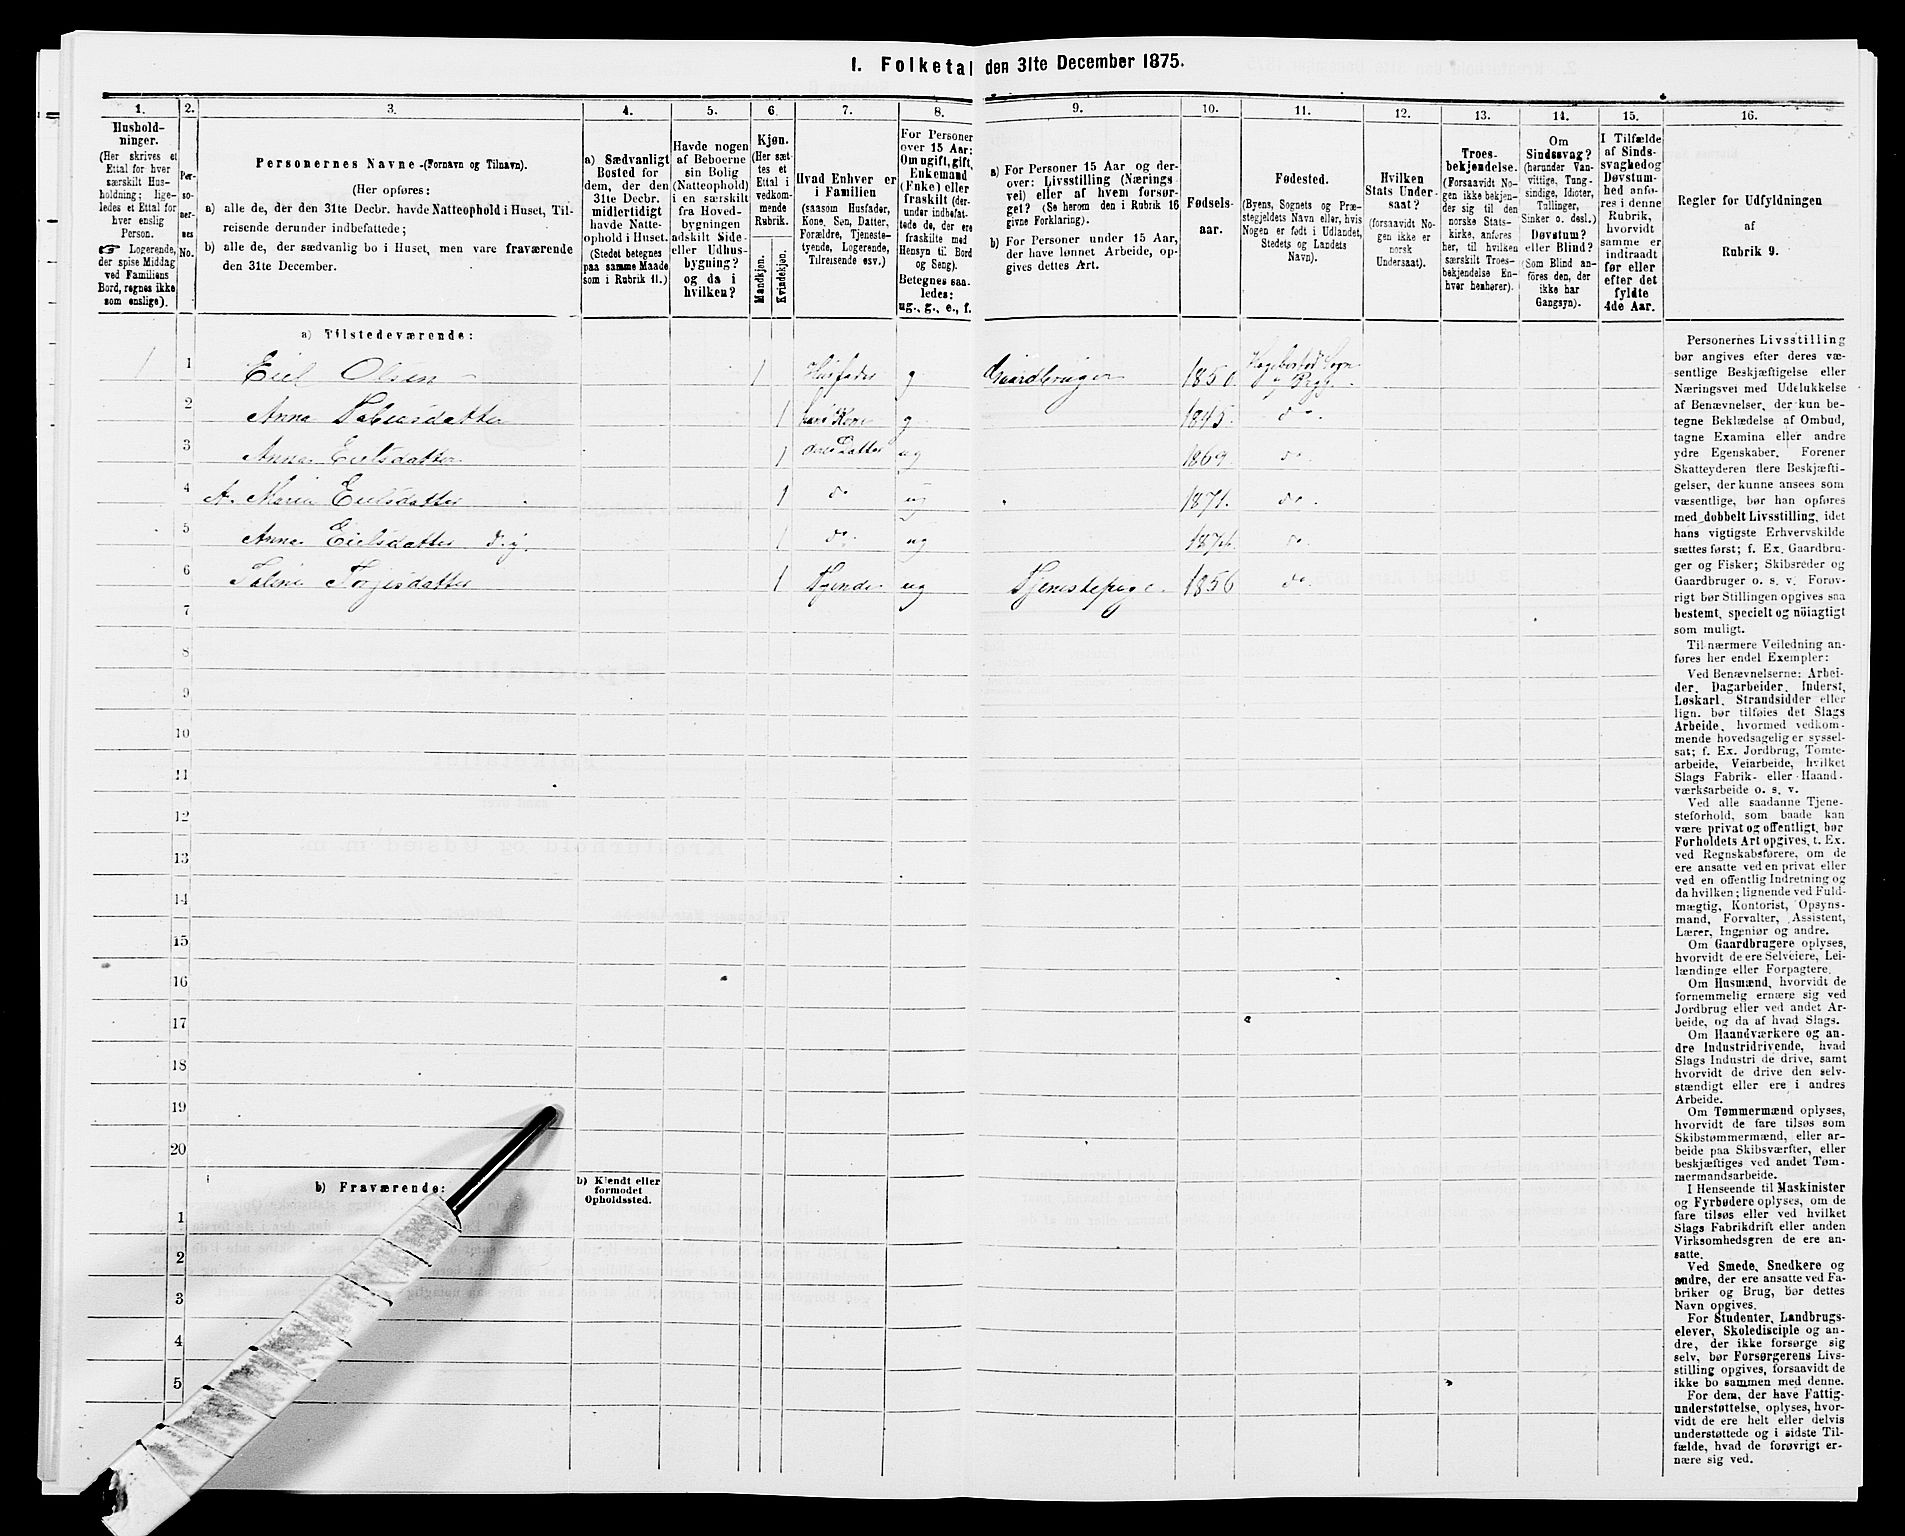 1. Folketal den 31te December 1875.
1. 2. 3. 4. 5. 6. 7. 8. 9. 10. 11. 12. 13. 14. 15. 16.
Husholdninger.
(Her skrives et
Ettal for hver
særskilt Husholdning;
ligeledes et Ettal for
hver enslig
Person.
☞ Logerende,
der spise Middag
ved Familiens
Bord, regnes ikke
som enslige).
Personernes No.
Personernes Navne (Fornavn og Tilnavn).
(Her opføres:
a) alle de, der den 31te Decbr. havde Natteophold i Huset, Tilreisende derunder indbefattede;
b) alle de, der sædvanlig bo i Huset, men vare fraværende
den 31te December.
a) Sædvanligt
Bosted for
dem, der den
31te Decbr.
midlertidigt
havde Natteophold
i Huset.
(Stedet betegnes
paa samme Maade
som i Rubrik 11.)
Havde nogen
af Beboerne
sin Bolig
(Natteophold)
i en særskilt
fra Hovedbygningen
adskilt Side-
eller Udhusbygning?
og da i
hvilken?
Kjøn.
(Her sættes
et
Ettal i
vedkommende
Rubrik.
Mandkjøn.
Kvindekjøn.
Hvad Enhver er
i Familien
(saasom Husfader,
Kone, Søn, Datter,
Forældre, Tjenestetyende,
Logerende,
Tilreisende osv.)
For Personer
over 15 Aar:
Om ugift, gift,
Enkemand
(Enke) eller
fraskilt (derunder
indbefattede
de, der ere
fraskilte med
Hensyn til Bord
og Seng).
Betegnes saaledes:
ug., g., e., f.
a) For Personer 15 Aar og derover:
Livsstilling (Næringsvei)
eller af hvem forsørget?
(Se herom den i Rubrik 16
givne Forklaring).
b) For Personer under 15 Aar,
der have lønnet Arbeide, opgives
dettes Art.
Fødselsaar.
Fødested.
(Byens, Sognets og Præstegjeldets
Navn eller, hvis
Nogen er født i Udlandet,
Stedets og Landets
Navn).
Hvilken
Stats Undersaat?
(forsaavidt Nogen
ikke er
norsk
Undersaat).
Troesbekjendelse.
(Forsaavidt Nogen
ikke bekjender
sig til den
norske Statskirke,
anføres
her, til hvilken
særskilt Troesbekjendelse
Enhver
henhører).
Om
Sindssvag?
(herunder Vanvittige,
Tungsindige,
Idioter,
Tullinger,
Sinker o. desl.)
Døvstum?
eller Blind?
(Som Blind anføres
den, der
ikke har
Gangsyn).
I Tilfælde
af Sindssvaghed
og
Døvstumhed
anføres
i denne
Rubrik,
hvorvidt
samme er
indtraadt
før eller
efter det
fyldte
4de Aar.
Regler for Udfyldningen
af
Rubrik 9.
a) Tilstedeværende:
1 1 Eiel Olsen 1 Husfader g Gaardbruger 1850. Hægebostad Sogn og Prgj.
2 Anna Tobiasdatter 1 hans Kone g 1845. do.
3 Anna Eielsdatter 1 deres Datter ug 1869. do.
4 A. Maria Eielsdatter 1 do ug 1871. do.
5 Anna Eielsdatter d.y. 1 do. ug do.
6 Torjesdatter 1 ug Tjenestepige. 1856 do.
7
8
9
10
11
12
13
14
15
16
17
18
19
20
b) Fraværende:
b) Kjendt eller
formodet
Opholdssted.
1
2
3
4
5
Personernes Livsstilling
bør angives efter deres væsentlige
Beskjæftigelse eller
Næringsvei med Udelukkelse
af Benævnelser, der kun betegne
Beklædelse af Ombud,
tagne Examina eller andre
ydre Egenskaber. Forener
Skatteyderen flere Beskjæftigelser,
der kunne ansees som
væsentlige, bør han opføres
med dobbelt Livsstilling, idet
hans vigtigste Erhvervskilde
sættes først; f. Ex. Gaardbruger
og Fisker; Skibsreder og
Gaardbruger o. s. v. Forøvrigt
bør Stillingen opgives saa
bestemt, specielt og nöiagtigt
som muligt.
Til nærmere Veiledning anføres
her endel Exempler:
Ved Benævnelserne: Arbeider,
Dagarbeider, Inderst,
Løskarl, Strandsidder eller
lign. bør tilføies det Slags
Arbeide, hvormed vedkommende
hovedsagelig er sysselsat;
f. Ex. Jordbrug, Tomtearbeide,
Veiarbeide, hvilket
Slags Fabrik- eller Haandværksarbeide
o. s. v.
Ved alle saadanne Tjenesteforhold,
som baade kan
være privat og offentligt, bør
Forholdets Art opgives, f. Ex.
ved Regnskabsførere, om de
ere ansatte ved en privat eller
ved en offentlig Indretning og
da hvilken; lignende ved Fuldmægtig,
Kontorist, Opsynsmand,
Forvalter, Assistent,
Lærer, Ingeniør og andre.
Om Gaardbrugere oplyses,
hvorvidt de ere Selveiere, Leilændinge
eller Forpagtere.
Om Husmænd, hvorvidt de
fornemmelig ernære sig ved
Jordbrug eller ved andet Arbeide,
og da af hvad Slags.
Om Haandværkere og andre
Industridrivende, hvad
Slags Industri de drive, samt
hvorvidt de drive den selvstændigt
eller ere i andres
Arbeide.
Om Tømmermænd oplyses,
hvorvidt de fare tilsøs som
Skibstømmermænd, eller arbeide
paa Skibsværfter, eller
beskjæftiges ved andet Tømmermandsarbeide.
I Henseende til Maskinister
og Fyrbødere oplyses, om de
fare tilsøs eller ved hvilket
Slags Fabrikdrift eller anden
Virksomhedsgren de ere ansatte.
Ved Smede, Snedkere og
andre, der ere ansatte ved Fabriker
og Brug, bør dettes
Navn opgives.
For Studenter, Landbrugselever,
Skoledisciple og andre,
der ikke forsørge sig
selv, bør Forsørgerens Livsstilling
opgives, forsaavidt de
ikke bo sammen med denne.
For dem, der have Fattigunderstøttelse,
oplyses, hvorvidt
de ere helt eller delvis
understøttede og i sidste Tilfælde,
hvad de forøvrigt ernære
sig ved.